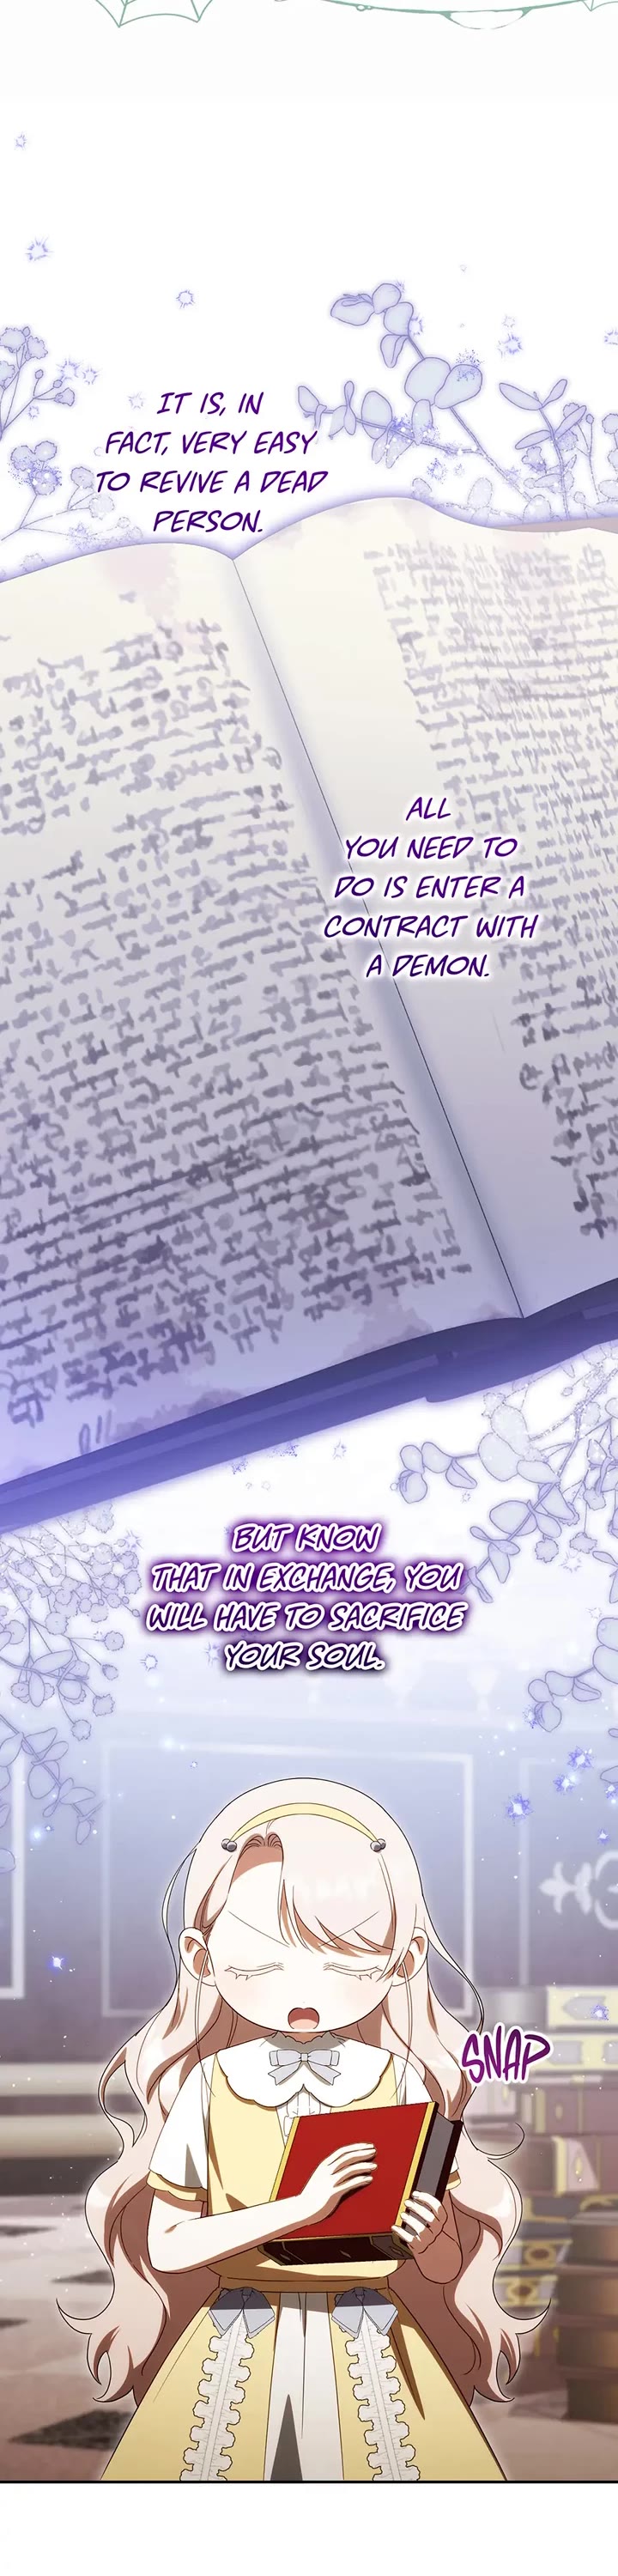 IT IS, IN
FACT, VERY EASY
TO REVIVE A DEAD
PERSON.
ALL
YOU NEED TO
DO IS ENTER A
CONTRACT WITH
A DEMON.
BUT KNOW
THAT IN EXCHANGE, YOU
WILL HAVE TO SACRIFICE
YOUR SOUL.
SNAP